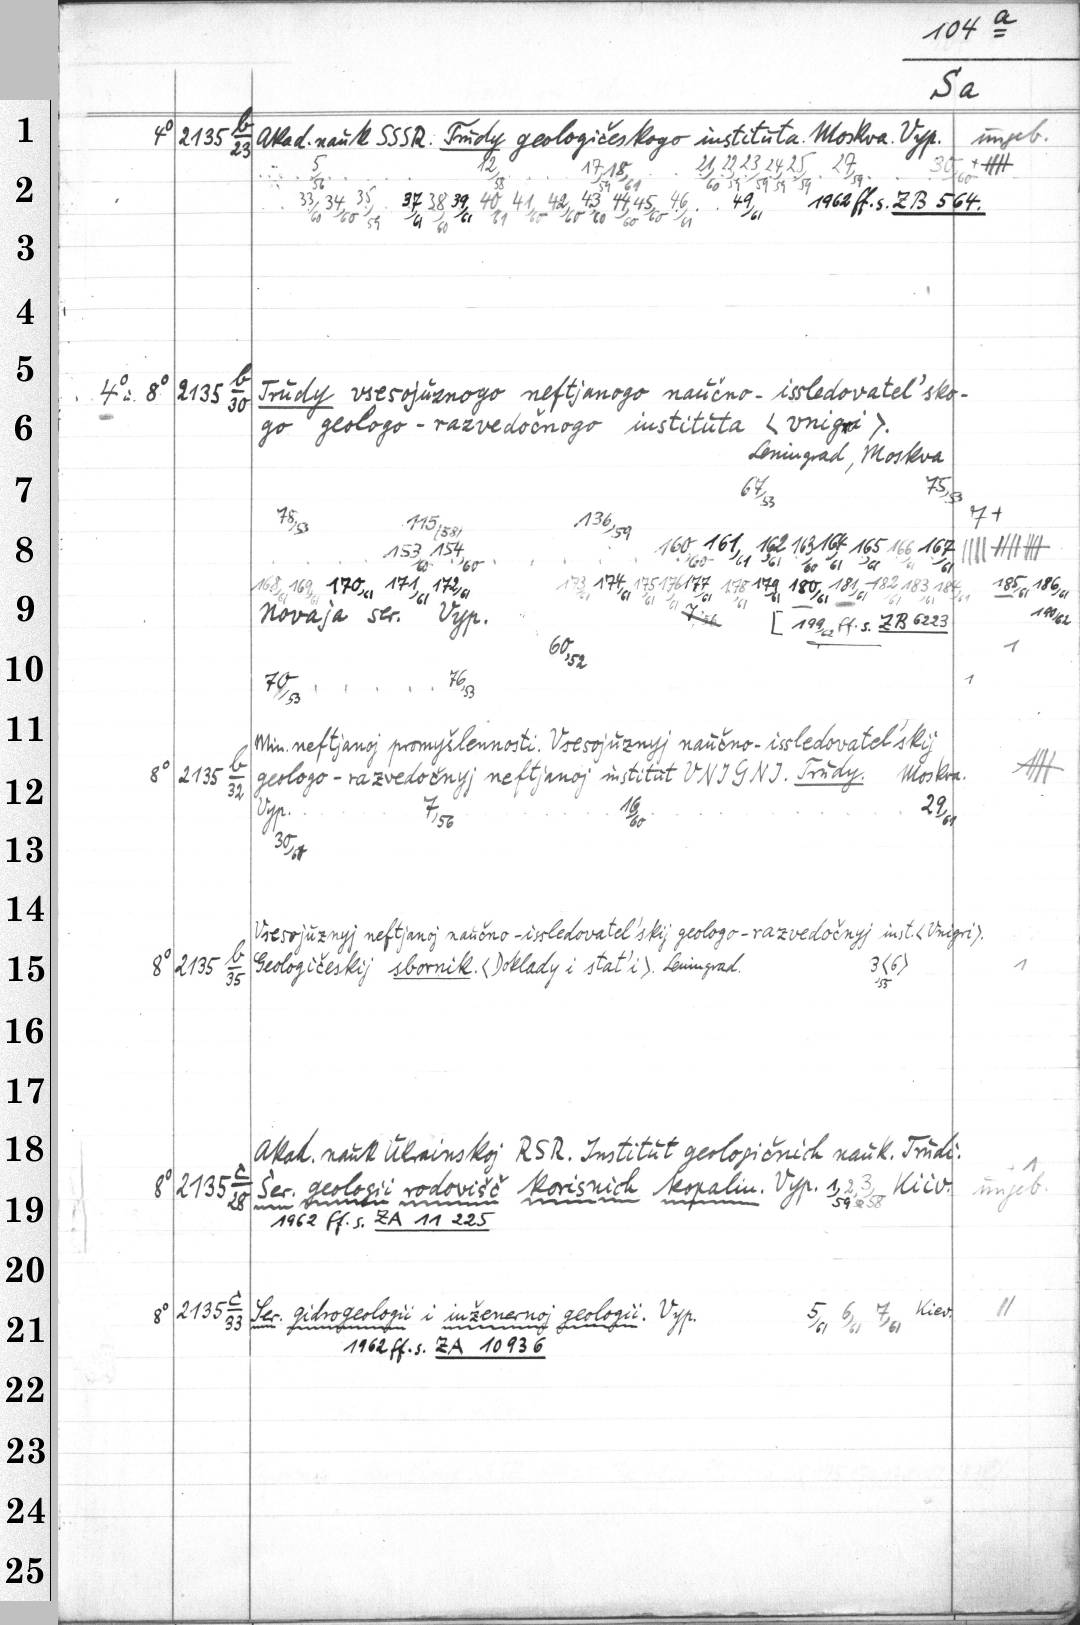 104 a
Sa
1
4° 2135 b/23 Akad. nauk SSSR. Trudy geologičeskogo instituta. Moskva. Vyp. ungeb.
5,56 12,58 17,59 18,61 21,60 22,59 23,59 24,59 25,59 27,59 30,60 +
2
33,60 34,60 35,59 37,61 38,60 39,61 40,61 41,60 42,60 43,60 44,60 45,60 46,61 49,61 1962 ff. s. ZB 564.
3
4
5
4° u. 8° 2135 b/30 Trudy vsesojuznogo neftjanogo naučno-issledovatel'sko-
6
go geologo-razvedočnogo instituta <vnigri>.
Leningrad, Moskva
7
67,53 75,53
78,53 115,(58) 136,59 7+
8
153,60 154,60 160,60 161,61 162,61 163,60 164,61 165,61 166,61 167,61
168,61 169,61 170,61 171,61 172,61 173,61 174,61 175,61 176,61 177,61 178,61 179,61 180,61 181,61 182,61 183,61 184,61 185,61 186,61
9
Novaja ser. Vyp. 7,56 [199,62 ff. s. ZB 6223 190,62
60,52 1
10
70,53 76,53 1
11
Min. neftjanoj promyšlennosti. Vsesojuznyj naučno-issledovatel'skij
8° 2135 b/32 geologo-razvedočnyj neftjanoj institut VNIGNI. Trudy. Moskva.
12
Vyp. 7,56 16,60 29,61
13
30,61
14
Vsesojuznyj neftjanoj naučno-issledovatel'skij geologo-razvedočnyj inst.<Vnigri>.
15
8° 2135 b/35 Geologičeskij sbornik. <Doklady i stat'i>. Leningrad. 3<6>,55 1
16
17
18
Akad. nauk Ukrainskoj RSR. Institut geologičnich nauk. Trudi. 1
8° 2135 c/28 Ser. geologii rodovišč korisnich kopalin. Vyp. 1,59 2, 3,58 Kiiv. ungeb.
19
1962 ff. s. ZA 11 225
20
8° 2135 c/33 Ser. gidrogeologii i inženernoj geologii. Vyp. 5,61 6,61 7,61 Kiev. 11
21
1962 ff. s. ZA 10936
22
23
24
25